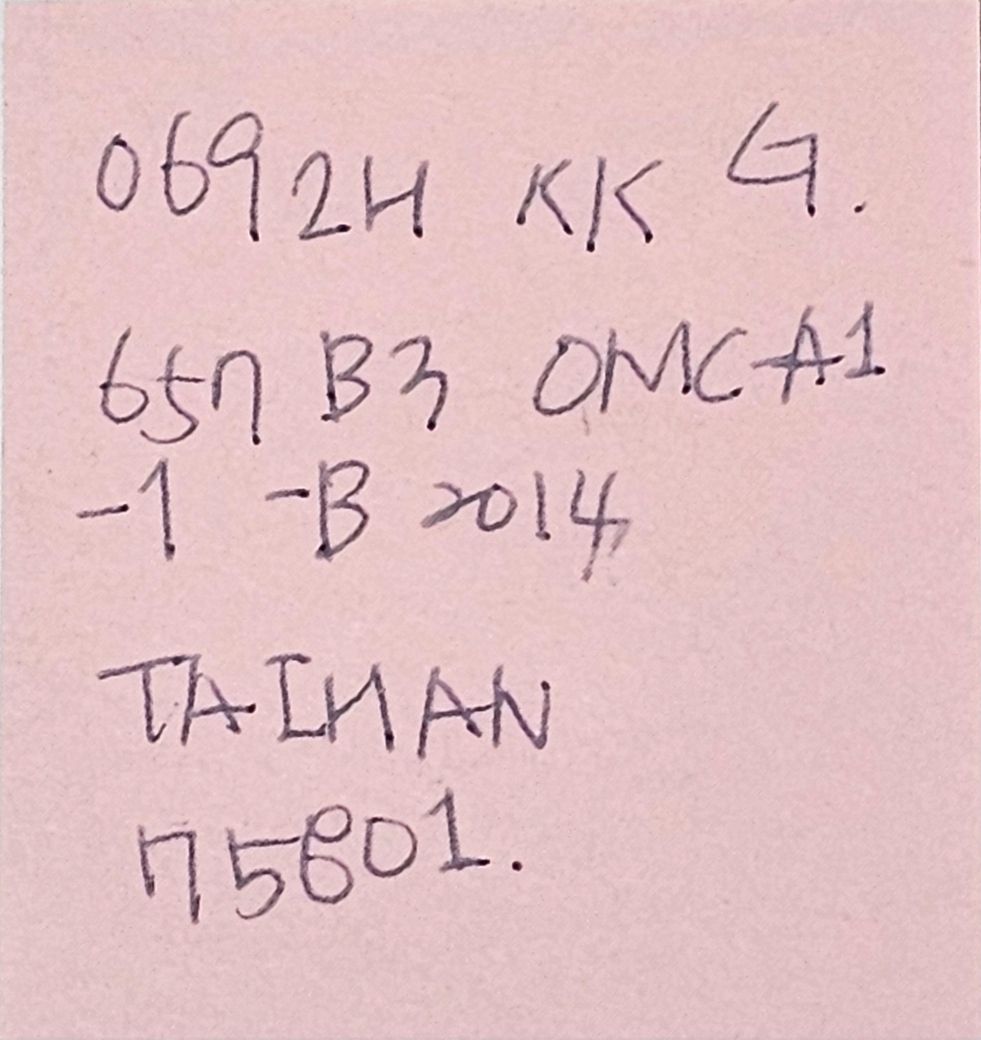 0692H KK G.
657 B3 OMCA1
-1 -B 2014
TAIHAN
75801.